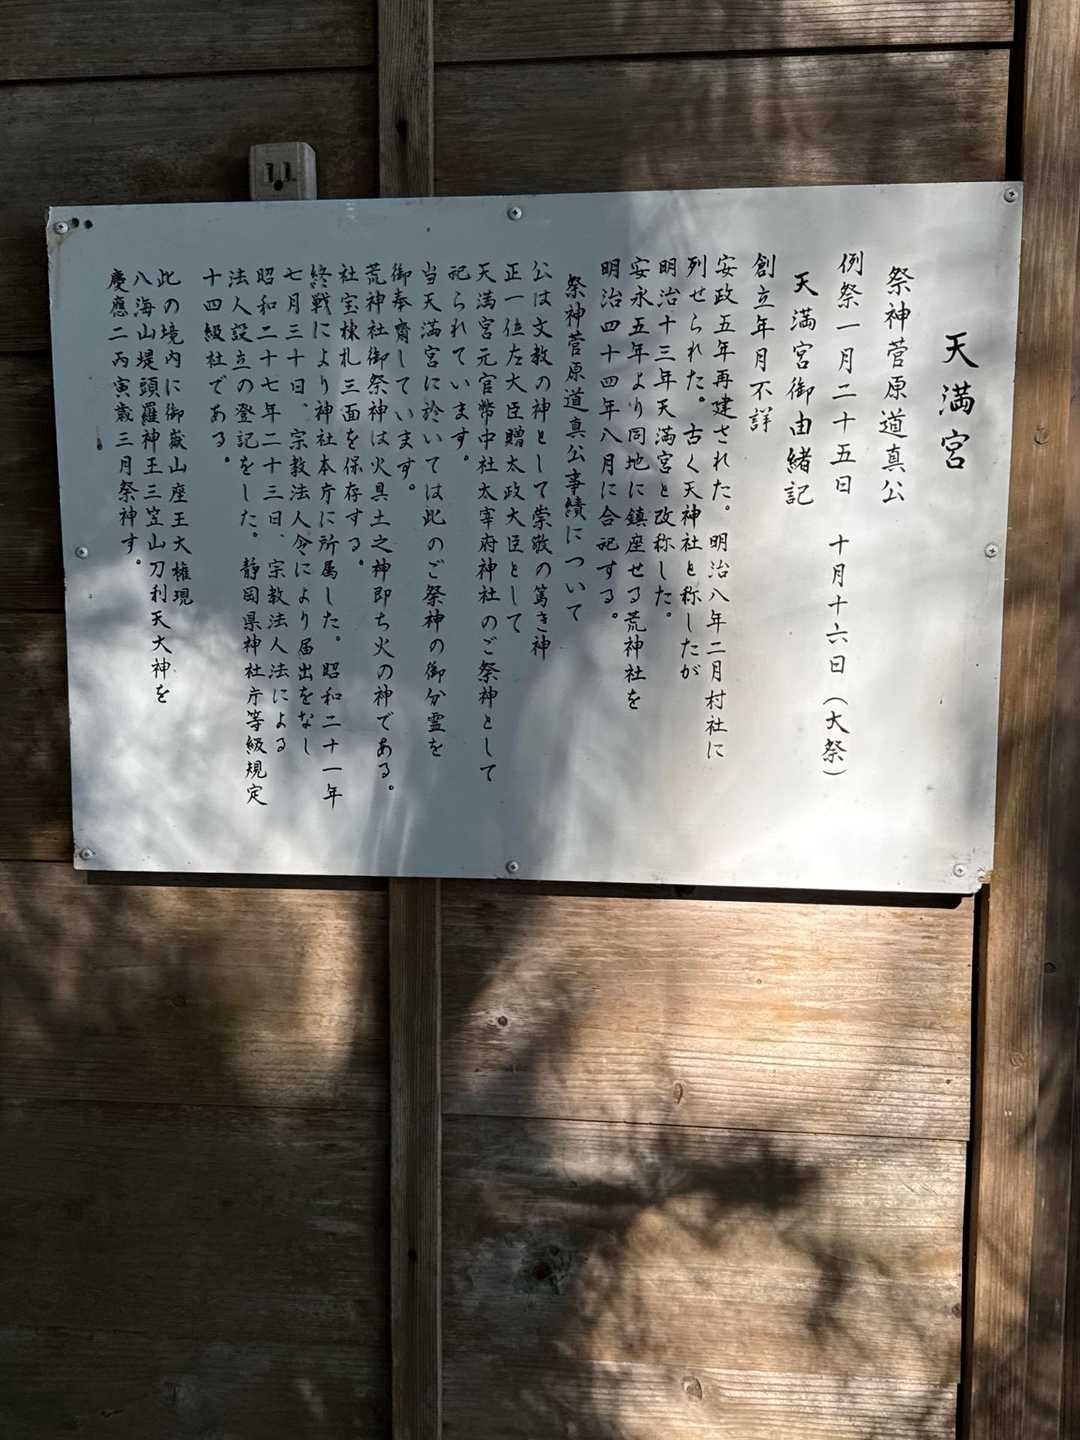 天満宮
祭神菅原道真公
例祭一月二十五日　十月十六日（大祭）
天満宮御由緒記
創立年月不詳
安政五年再建された。明治八年二月村社に
列せられた。古く天神社と称したが
明治十三年天満宮と改称した。
安永五年より同地に鎮座せる荒神社を
明治四十四年八月に合祀する。
祭神菅原道真公事績について
公は文教の神として崇敬の篤き神
正一位左大臣贈太政大臣として
天満宮元官幣中社太宰府神社のご祭神として
祀られています。
当天満宮に於いては此のご祭神の御分霊を
御奉齋しています。
荒神社御祭神は火具土之神即ち火の神である。
社宝棟札三面を保存する。
終戦により神社本庁に所属した。昭和二十一年
七月三十日、宗教法人令により届出をなし
昭和二十七年二十三日、宗教法人法による
法人設立の登記をした。静岡県神社庁等級規定
十四級社である。
此の境内に御嶽山座王大権現
八海山堤頭羅神王三笠山刀利天大神を
慶應二丙寅歳三月祭神す。